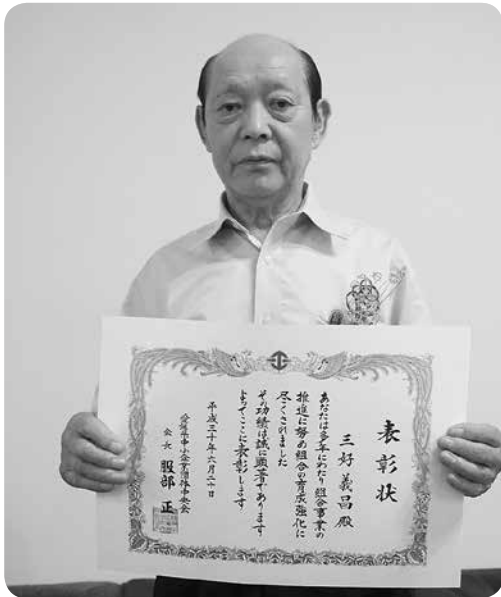 表彰状
三好義昌殿
あなたは多年にわたり組合事業の
推進に努め組合の育成強化に
尽くされました
その功績は誠に顕著であります
よってここに表彰します
平成三十年六月二十日
会長 服部 正